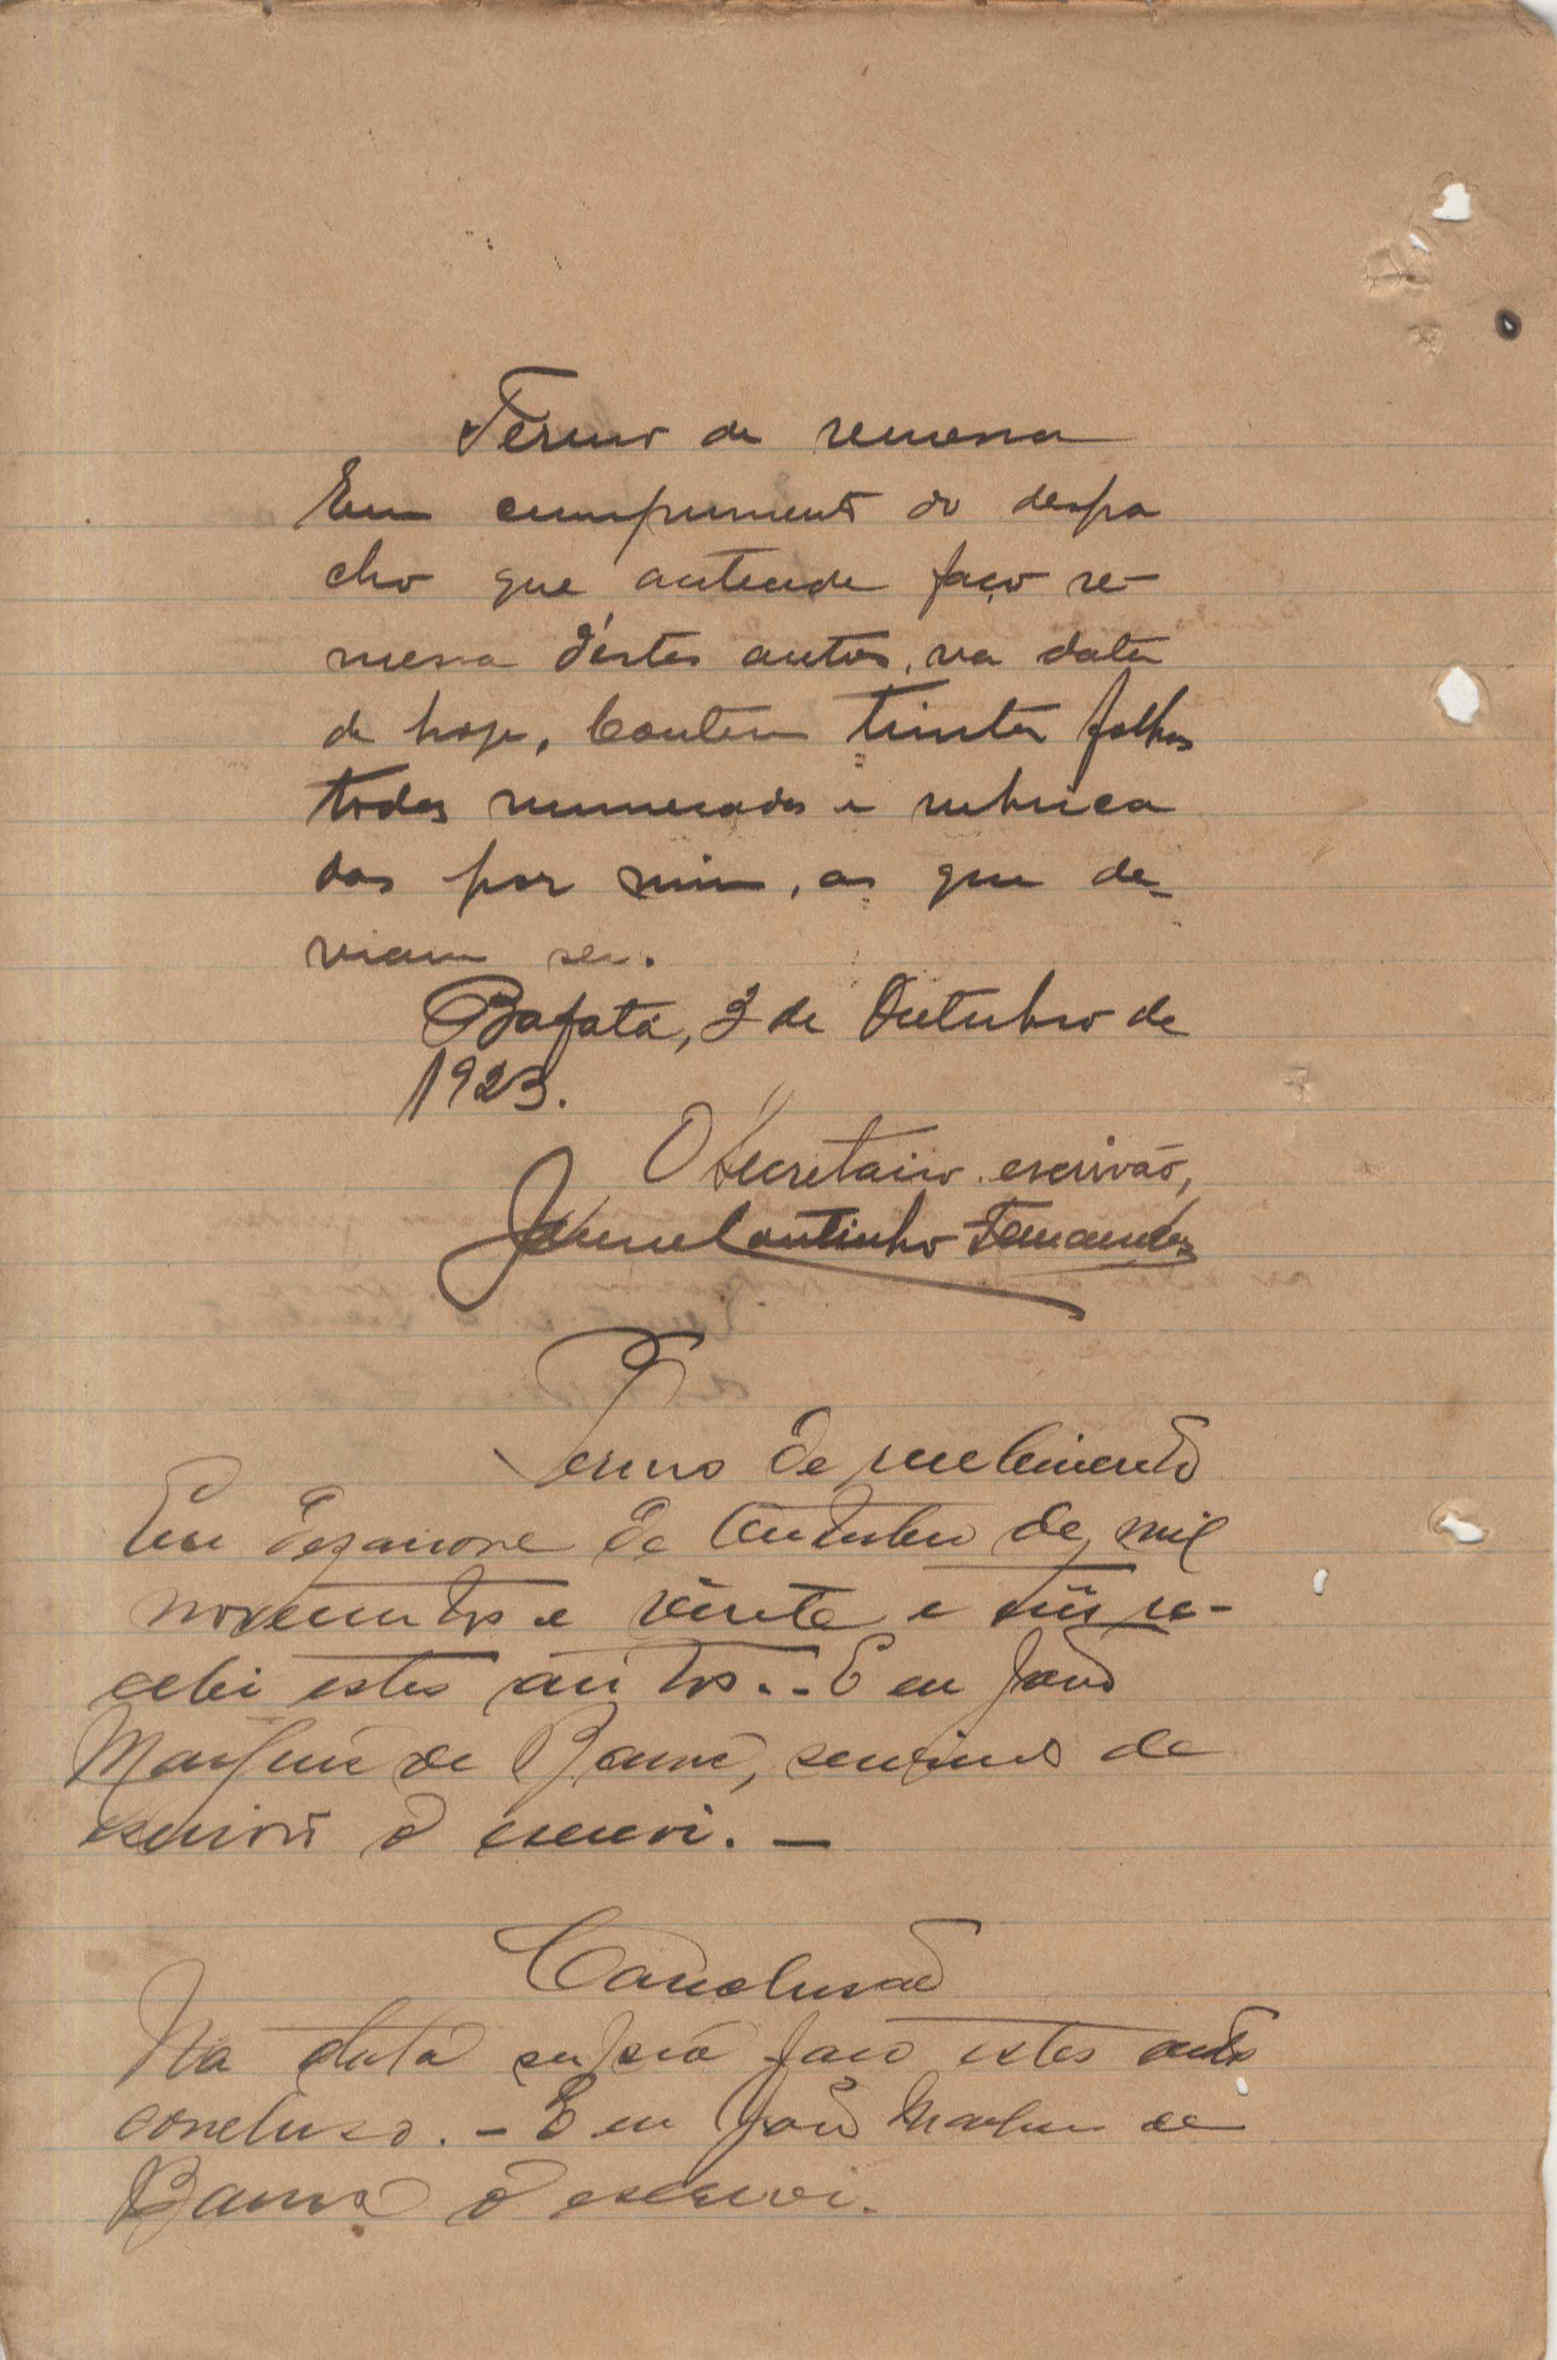 Termo de remessa
Em cumprimento do despa
cho que antecede faço re-
messa d'éstes autos, na data
de hoje. Contem trinta folhas
todas numeradas e rubrica
das por mim, as que de-
viam ser.
Bafatá, 3 de Outubro de
1923.
O Secretairo escrivão,
Jaime Coutinho Fernandes
Termo de recebimento
Em dezanove de Outubro de mil
novecentos e vinte e tres re-
cebi estes autos. - E eu João
de servindo de
escrivão o escrevi. -
Conclusão
Na data supra faço estes autos
concluso. - E eu João de
o escrevi.